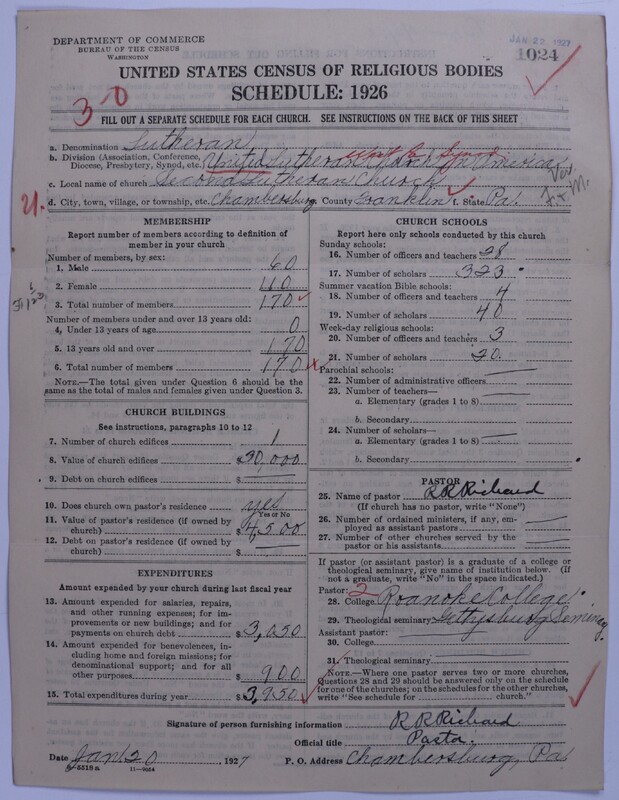 DEPARTMENT OF COMMERCE
BUREAU OF THE CENSUS
WASHINGTON
JAN 22 1927
1024
UNITED STATES CENSUS OF RELIGIOUS BODIES
SCHEDULE: 1926
3-0
FILL OUT A SEPARATE SCHEDULE FOR EACH CHURCH. SEE INSTRUCTIONS ON THE BACK OF THIS SHEET
a. Denomination Lutheran
b. Division (Association, Conference, Diocese, Presbytery, Synod, etc.) United Lutheran Church in America
c. Local name of church Second Lutheran Church
d. City, town, village, or township, etc. Chambersburg County Franklin f. State Pa.
MEMBERSHIP
Report number of members according to definition of
member in your church
Number of members, by sex:
1. Male 60
2. Female 110
3. Total number of members 170
Number of members under and over 13 years old:
4. Under 13 years of age 0
5. 13 years old and over 170
6. Total number of members 170
NOTE.—The total given under Question 6 should be the
same as the total of males and females given under Question 3.
CHURCH BUILDINGS
See instructions, paragraphs 10 to 12
7. Number of church edifices 1
8. Value of church edifices $30,000
9. Debt on church edifices $
10. Does church own pastor's residence yes
Yes or No
11. Value of pastor's residence (if owned by
church) $4,500
12. Debt on pastor's residence (if owned by
church) $
EXPENDITURES
Amount expended by your church during last fiscal year
13. Amount expended for salaries, repairs,
and other running expenses; for improvements or new buildings; and for
payments on church debt $3,050
14. Amount expended for benevolences,
including home and foreign missions; for
denominational support; and for all
other purposes $900
15. Total expenditures during year $3,950
CHURCH SCHOOLS
Report here only schools conducted by this church
Sunday schools:
16. Number of officers and teachers 28
17. Number of scholars 323
Summer vacation Bible schools:
18. Number of officers and teachers 4
19. Number of scholars 40
Week-day religious schools:
20. Number of officers and teachers 3
21. Number of scholars 20
Parochial schools:
22. Number of administrative officers
23. Number of teachers—
a. Elementary (grades 1 to 8)
b. Secondary
24. Number of scholars—
a. Elementary (grades 1 to 8)
b. Secondary
PASTOR
25. Name of pastor R R Richard
(If church has no pastor, write "None")
26. Number of ordained ministers, if any, employed as assistant pastors
27. Number of other churches served by the
pastor or his assistants
If pastor (or assistant pastor) is a graduate of a college or
theological seminary, give name of institution below. (If
not a graduate, write "No" in the space indicated.)
Pastor: 2
28. College Roanoke College
29. Theological seminary Gettysburg Seminary
Assistant pastor:
30. College
31. Theological seminary
NOTE.—Where one pastor serves two or more churches,
Questions 28 and 29 should be answered only on the schedule
for one of the churches; on the schedules for the other churches,
write "See schedule for church."
Signature of person furnishing information R R Richard
Official title Pastor
Date Jan 20 1927 P. O. Address Chambersburg, Pa.
8-5518a 11-9664